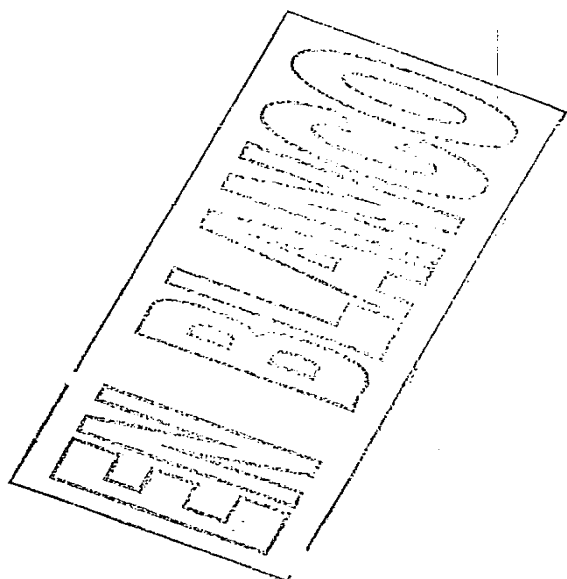 EN BLANCO